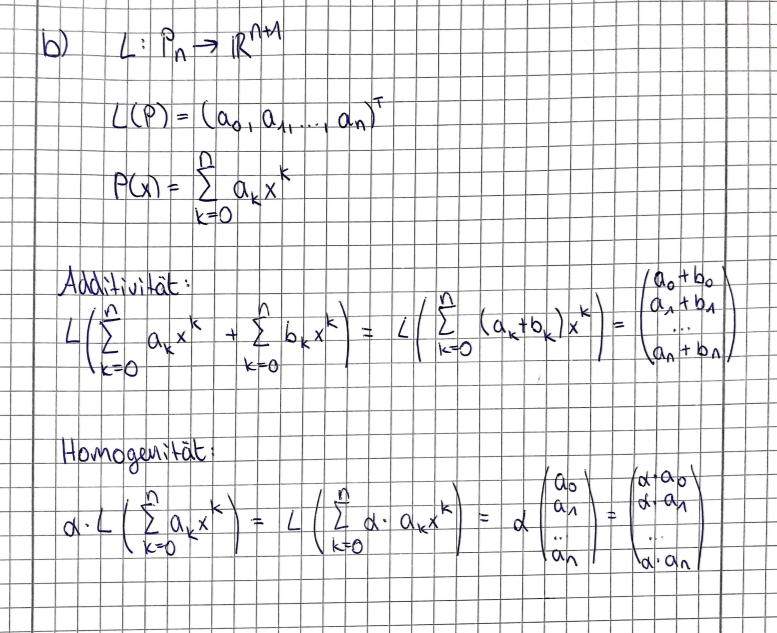 b) L: Pₙ → ℝⁿ⁺¹
L(P) = (a₀, a₁, ..., aₙ)ᵀ
P(x) = ∑_{k=0}^{n} aₖxᵏ
Additivität:
L(∑_{k=0}^{n} aₖxᵏ + ∑_{k=0}^{n} bₖxᵏ) = L(∑_{k=0}^{n} (aₖ+bₖ)xᵏ) = (a₀+b₀ a₁+b₁ ... aₙ+bₙ)
Homogenität:
α·L(∑_{k=0}^{n} aₖxᵏ) = L(∑_{k=0}^{n} α·aₖxᵏ) = α(a₀ a₁ .. aₙ) = (α·a₀ α·a₁ ... α·aₙ)